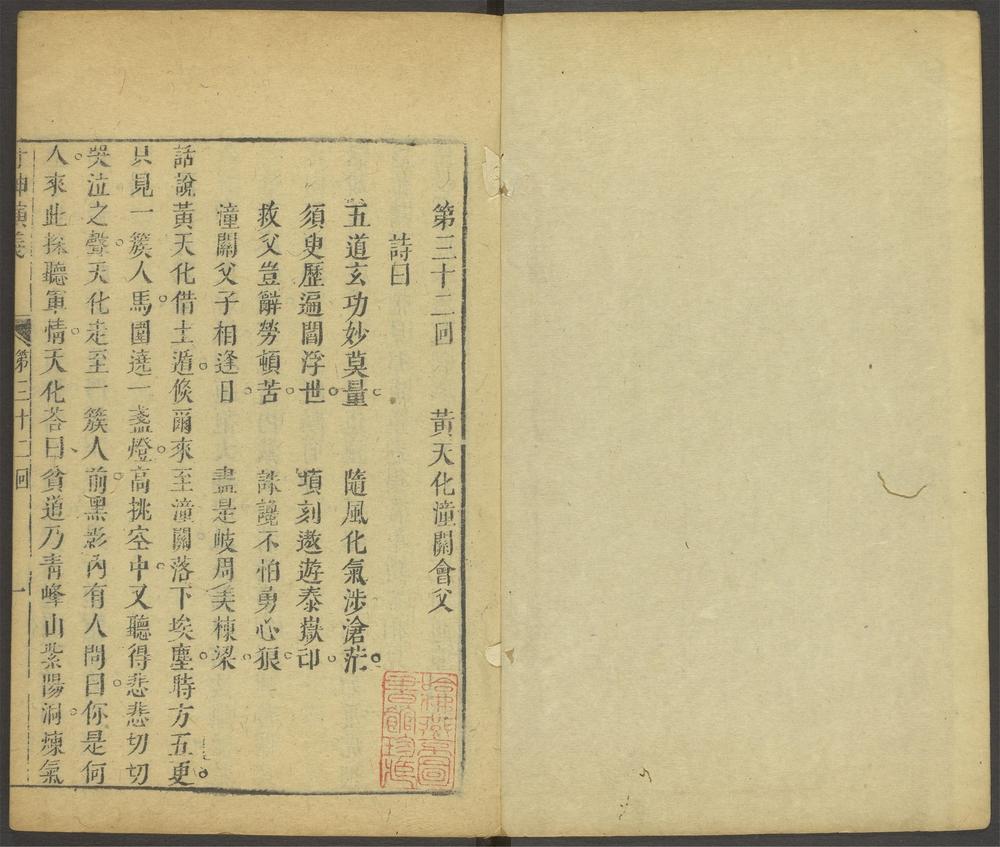 第三十二回 黃天化潼關會父
詩曰
五道玄功妙莫量。隨風化氣涉滄茫。
須臾歷遍閻浮世。頃刻遨遊泰嶽邙。
救父豈辭勞頓苦。誅讒不怕勇心狠。
潼關父子相逢日。盡是岐周美棟梁。
話說黃天化借土遁。倏爾來至潼關。落下埃塵。時方五更。
只見一簇人馬。圍遶一盞燈。高挑空中。又聽得悲悲切切
哭泣之聲。天化走至一簇人前。黑影內有人問曰。你是何
人。來此探聽軍情。天化荅曰、貧道乃青峰山紫陽洞。煉氣
封神演義 第三十二回 一
哈佛燕京圖書館珍藏